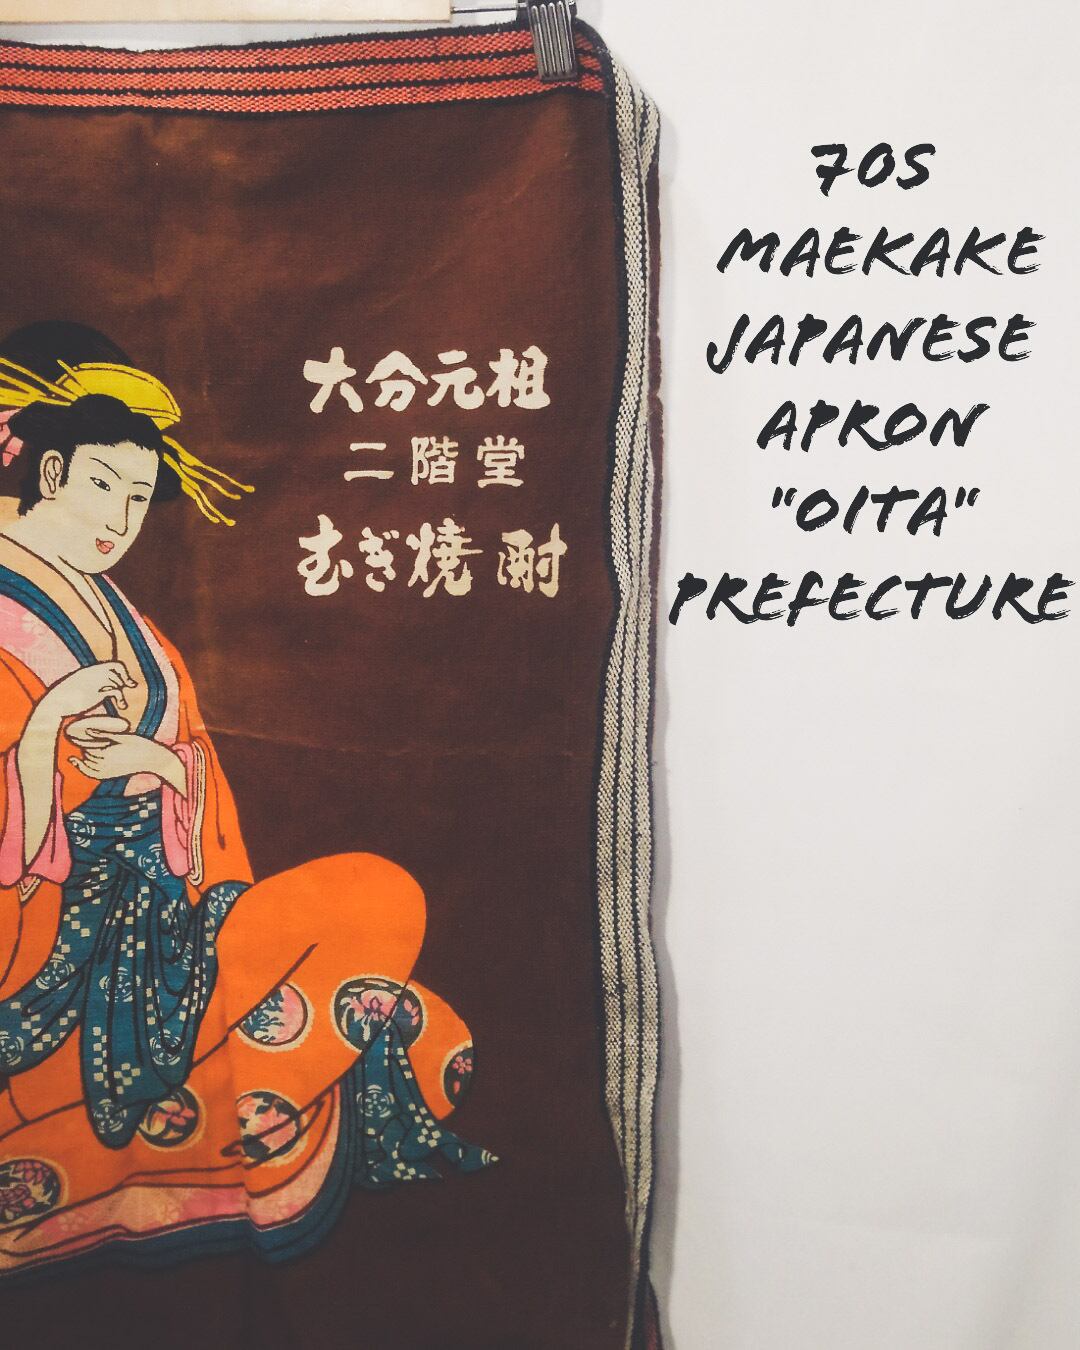 大分元祖
二階堂
むぎ焼酎
70S
MAEKAKE
JAPANESE
APRON
"OITA"
PREFECTURE